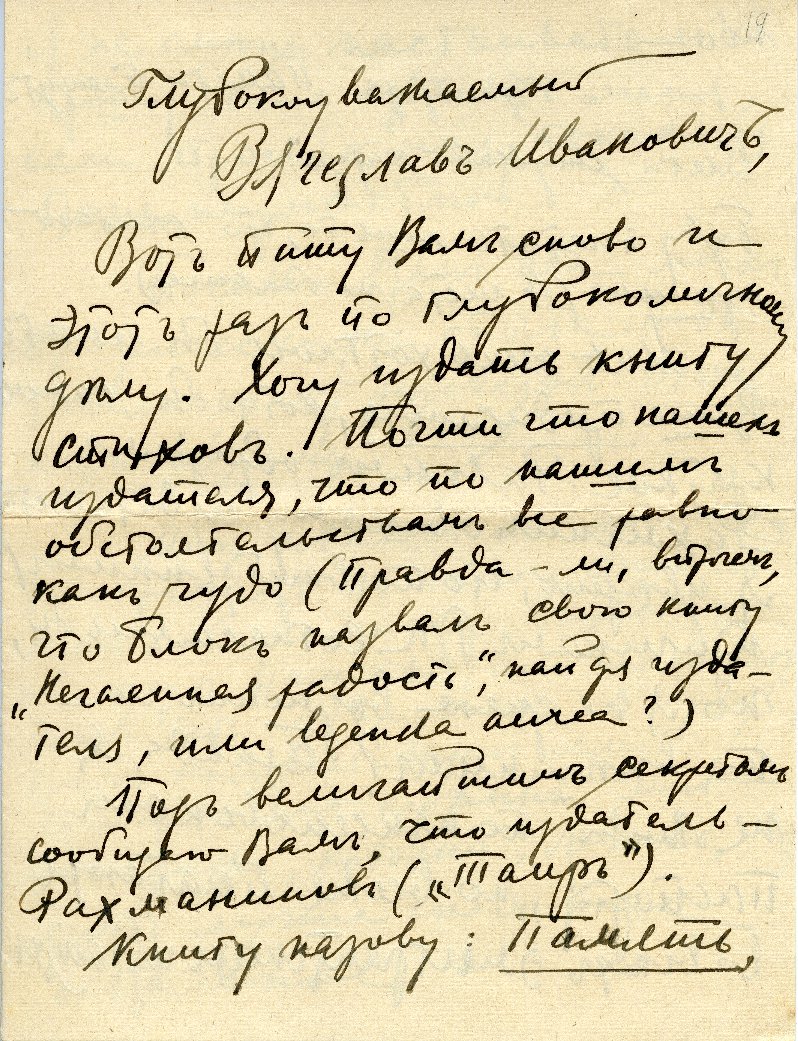 19
Глубокоуважаемый
Вячеславъ Ивановичъ,
Вотъ пишу Вамъ снова и
этотъ разъ по глубоколичному
дѣлу. Хочу издать книгу
стиховъ. Почти что нашелъ
издателя, что по нашимъ
обстоятельствамъ все равно
какъ чудо (Правда-ли, впрочемъ,
что Блокъ назвалъ свою книгу
„Нечаянная радость“, найдя изда-
теля, или legenda aurea?)
Подъ величайшимъ секретомъ
сообщаю Вамъ, что издатель –
Рахманиновъ („Таиръ“).
Книгу назову: Память,